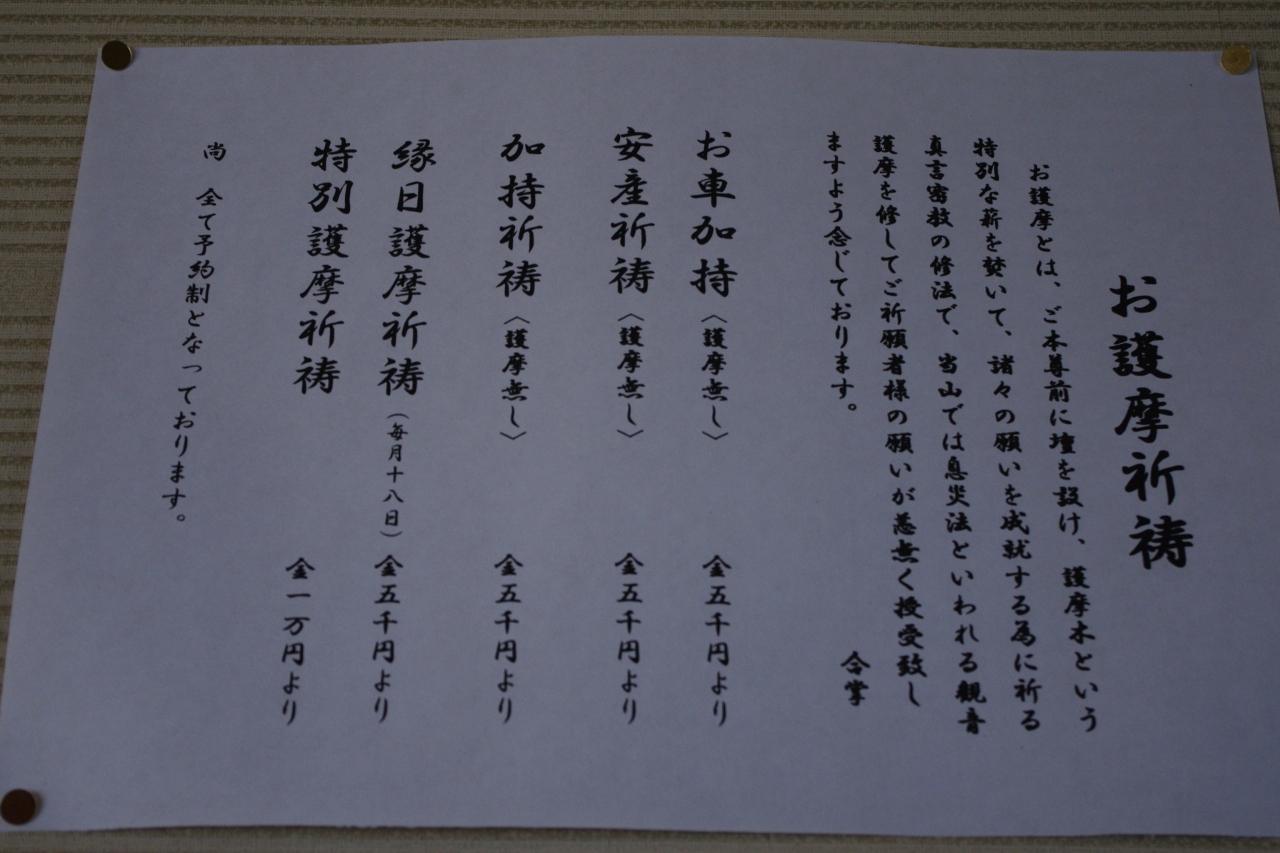 お護摩祈祷
お護摩とは、ご本尊前に壇を設け、護摩木という
特別な薪を焚いて、諸々の願いを成就する為に祈る
真言密教の修法で、当山では息災法といわれる観音
護摩を修してご祈願者様の願いが恙無く授受致し
ますよう念じております。
合掌
お車加持〈護摩無し〉 金五千円より
安産祈祷〈護摩無し〉 金五千円より
加持祈祷〈護摩無し〉 金五千円より
縁日護摩祈祷（毎月十八日）金五千円より
特別護摩祈祷 金一万円より
尚 全て予約制となっております。